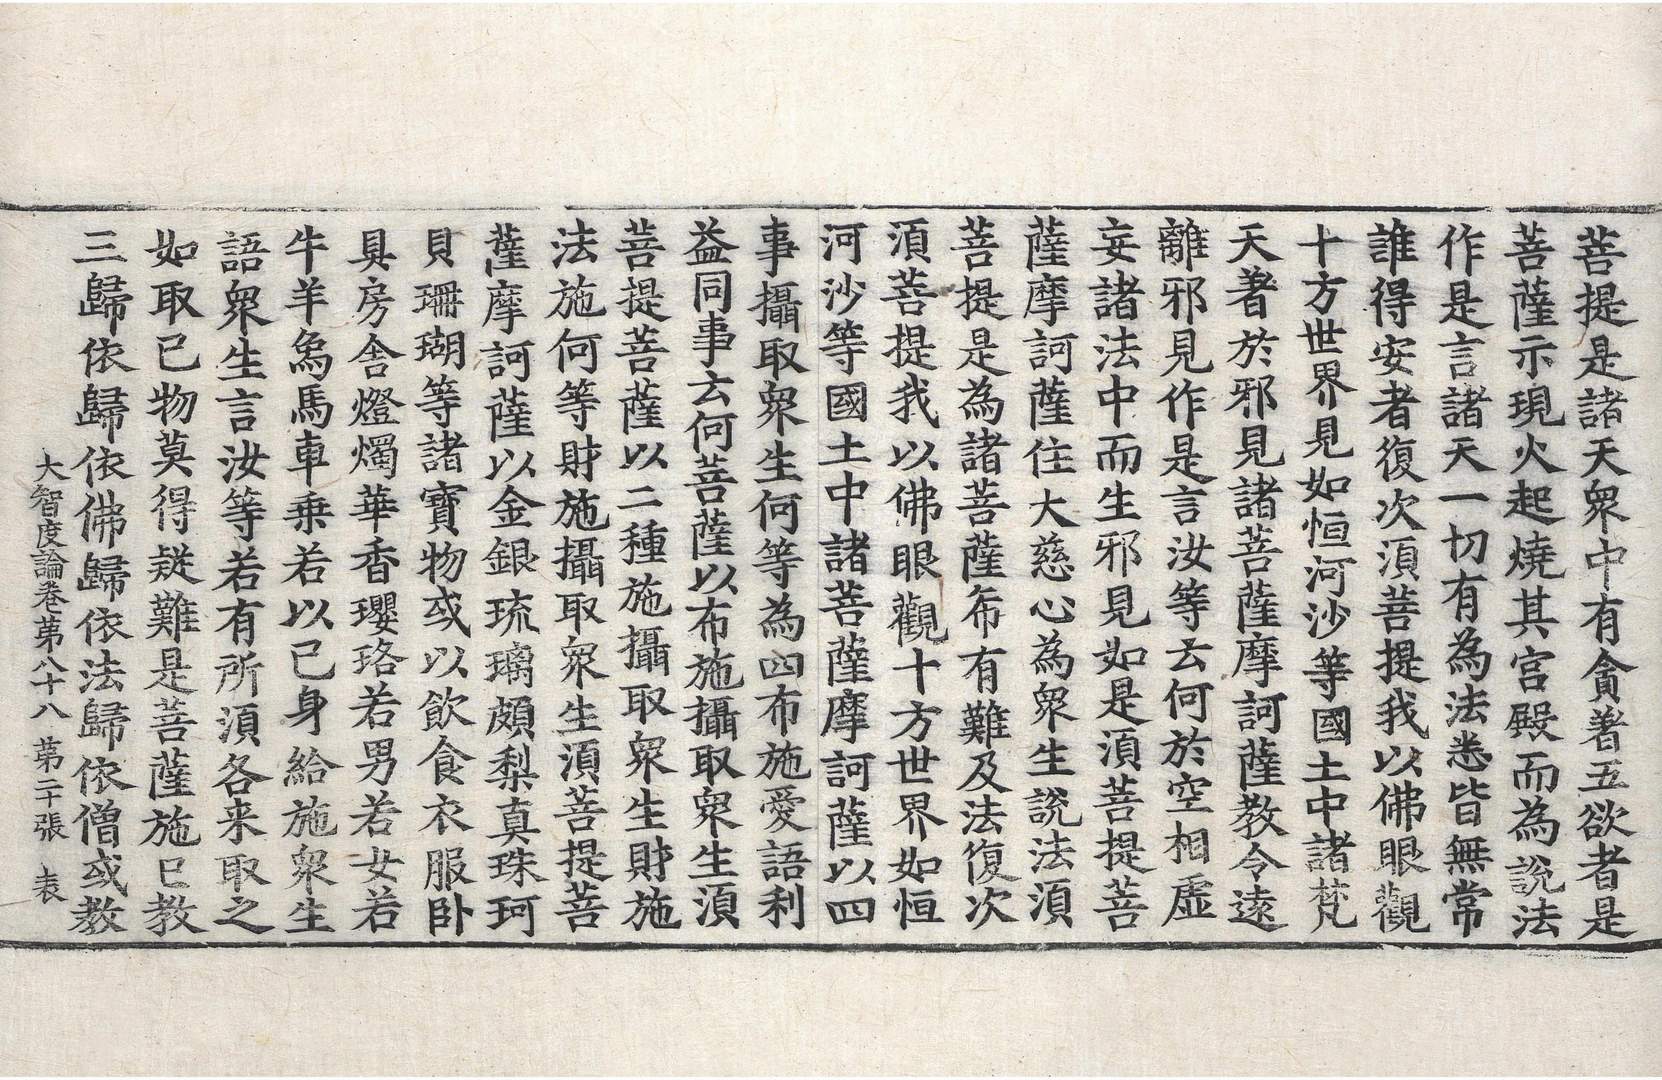 菩提是諸天衆中有貪著五欲者是
菩薩示現火起燒其宮殿而為說法
作是言諸天一切有為法悉皆無常
誰得安者復次須菩提我以佛眼觀
十方世界見如恒河沙等國土中諸梵
天著於邪見諸菩薩摩訶薩教令遠
離邪見作是言汝等云何於空相虛
妄諸法中而生邪見如是須菩提菩
薩摩訶薩住大慈心為衆生說法須
菩提是為諸菩薩希有難及法復次
須菩提我以佛眼觀十方世界如恒
河沙等國土中諸菩薩摩訶薩以四
事攝取衆生何等為四布施愛語利
益同事云何菩薩以布施攝取衆生須
菩提菩薩以二種施攝取衆生財施
法施何等財施攝取衆生須菩提菩
薩摩訶薩以金銀琉璃頗梨真珠珂
貝珊瑚等諸寶物或以飲食衣服卧
具房舍燈燭華香瓔珞若男若女若
牛羊象馬車乗若以己身給施衆生
語衆生言汝等若有所須各来取之
如取己物莫得疑難是菩薩施已教
三歸依歸依佛歸依法歸依僧或教
大智度論卷第八十八 第二十張 表